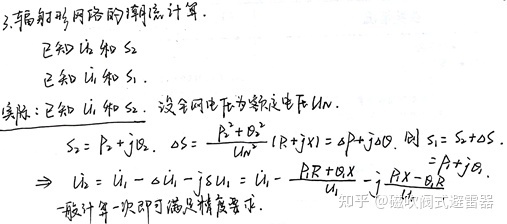 3.辐射形网络的潮流计算.
已知 U̇₂ 和 S₂
已知 U̇₁ 和 S₁.
实际:已知 U̇₁ 和 S₂. 设全网电压为额定电压UN.
S₂ = P₂ + jQ₂. ΔS = (P₂² + Q₂²)/UN² (R+jX) = ΔP + jΔQ. 则 S₁ = S₂ + ΔS.
= P₁ + jQ₁
⇒ U̇₂ = U̇₁ - ΔU̇₁ - jδU̇₁ = U̇₁ - (P₁R + Q₁X)/U₁ - j (P₁X - Q₁R)/U₁
一般计算一次即可满足精度要求.
知乎 @磁吹阀式避雷器